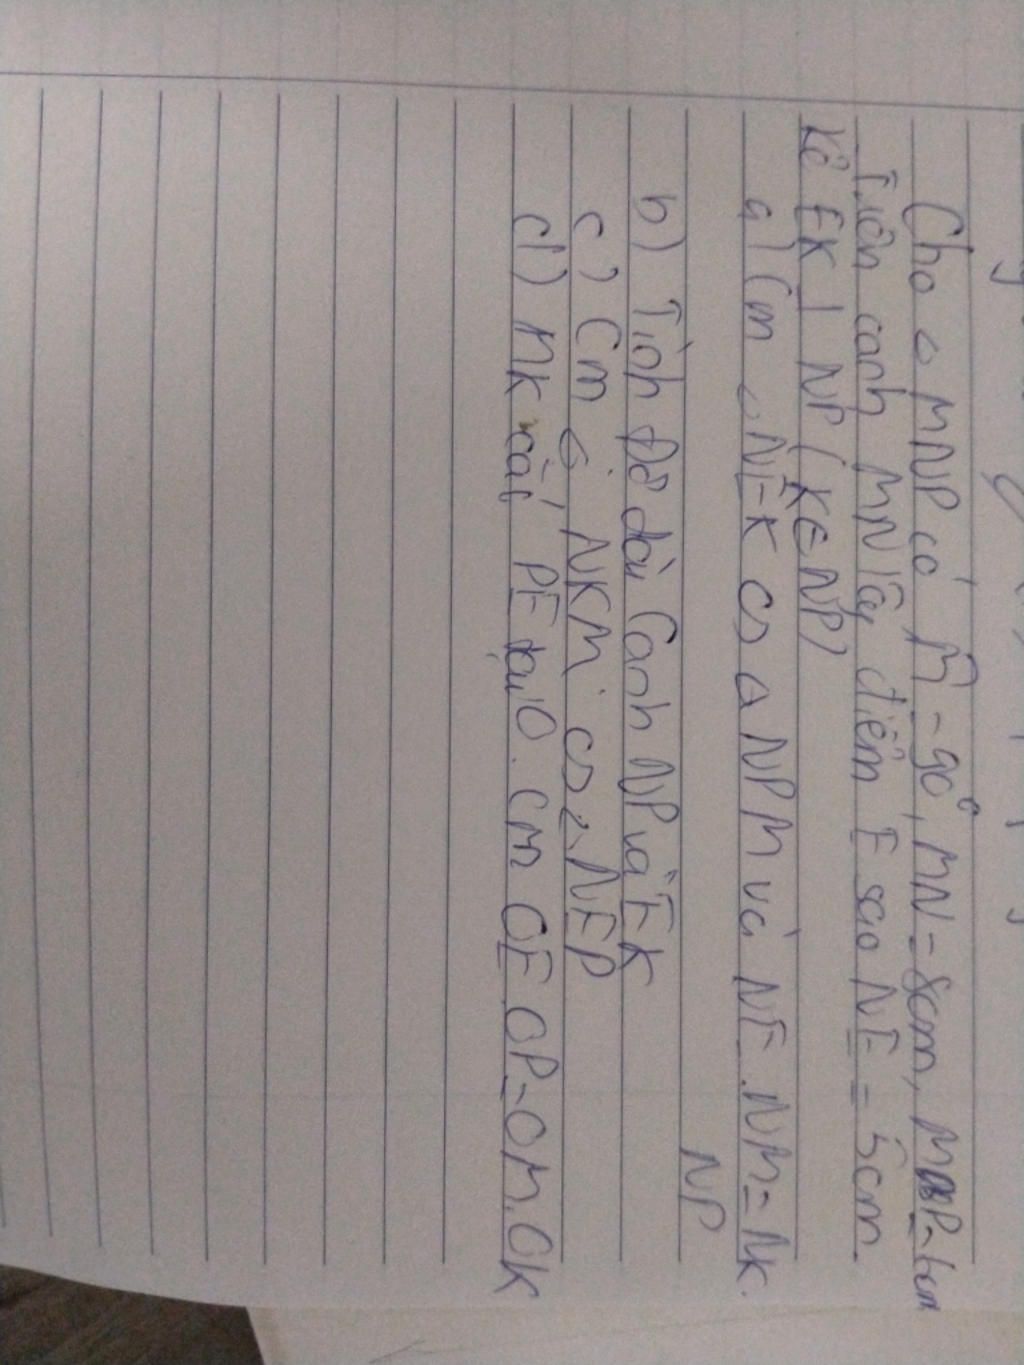 Cho △ MNP có M̂ = 90°, MN = 8cm, MP = 6cm
Trên cạnh MN lấy điểm E sao NE = 5cm.
Kẻ EK ⊥ NP (K∈NP)
a) Cm △NEK ∽ △NPM và NE.NM = NK.
NP
b) Tính độ dài Cạnh NP và EK
c) Cm △ NKM ∽ △NEP
d) MK cắt PE tại O. Cm OE.OP = OM.OK